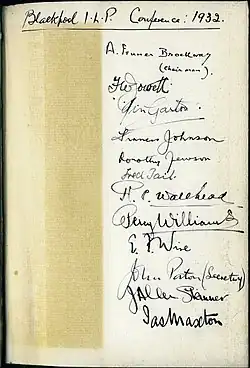 Blackpool I.L.P Conference: 1932.
A. Fenner Brockway
(chairman).
FW Jowett
Jim Garton.
Francis Johnson
Dorothy Jewson
Fred Tait
R. C. Wallhead
Percy Williams
E. F. Wise
John Paton (Secretary)
J Allen Skinner
Jas Maxton